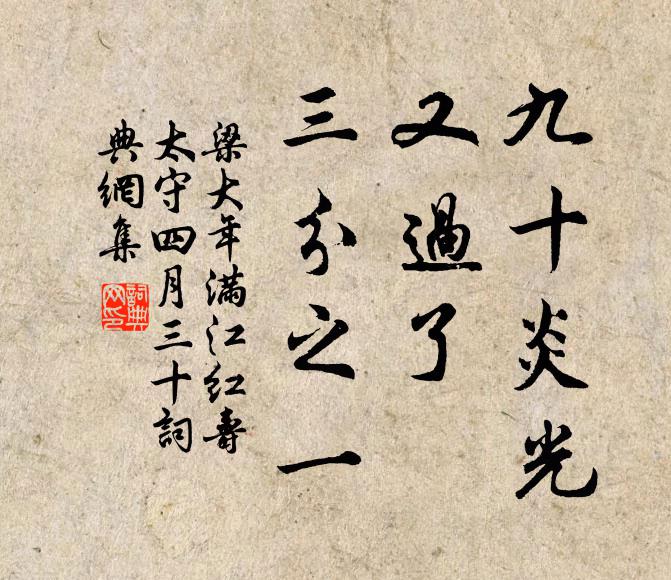 九十炎光
又過了
三分之一
梁大年滿江红壽
太守四月三十詞
典網集
詞典
网印